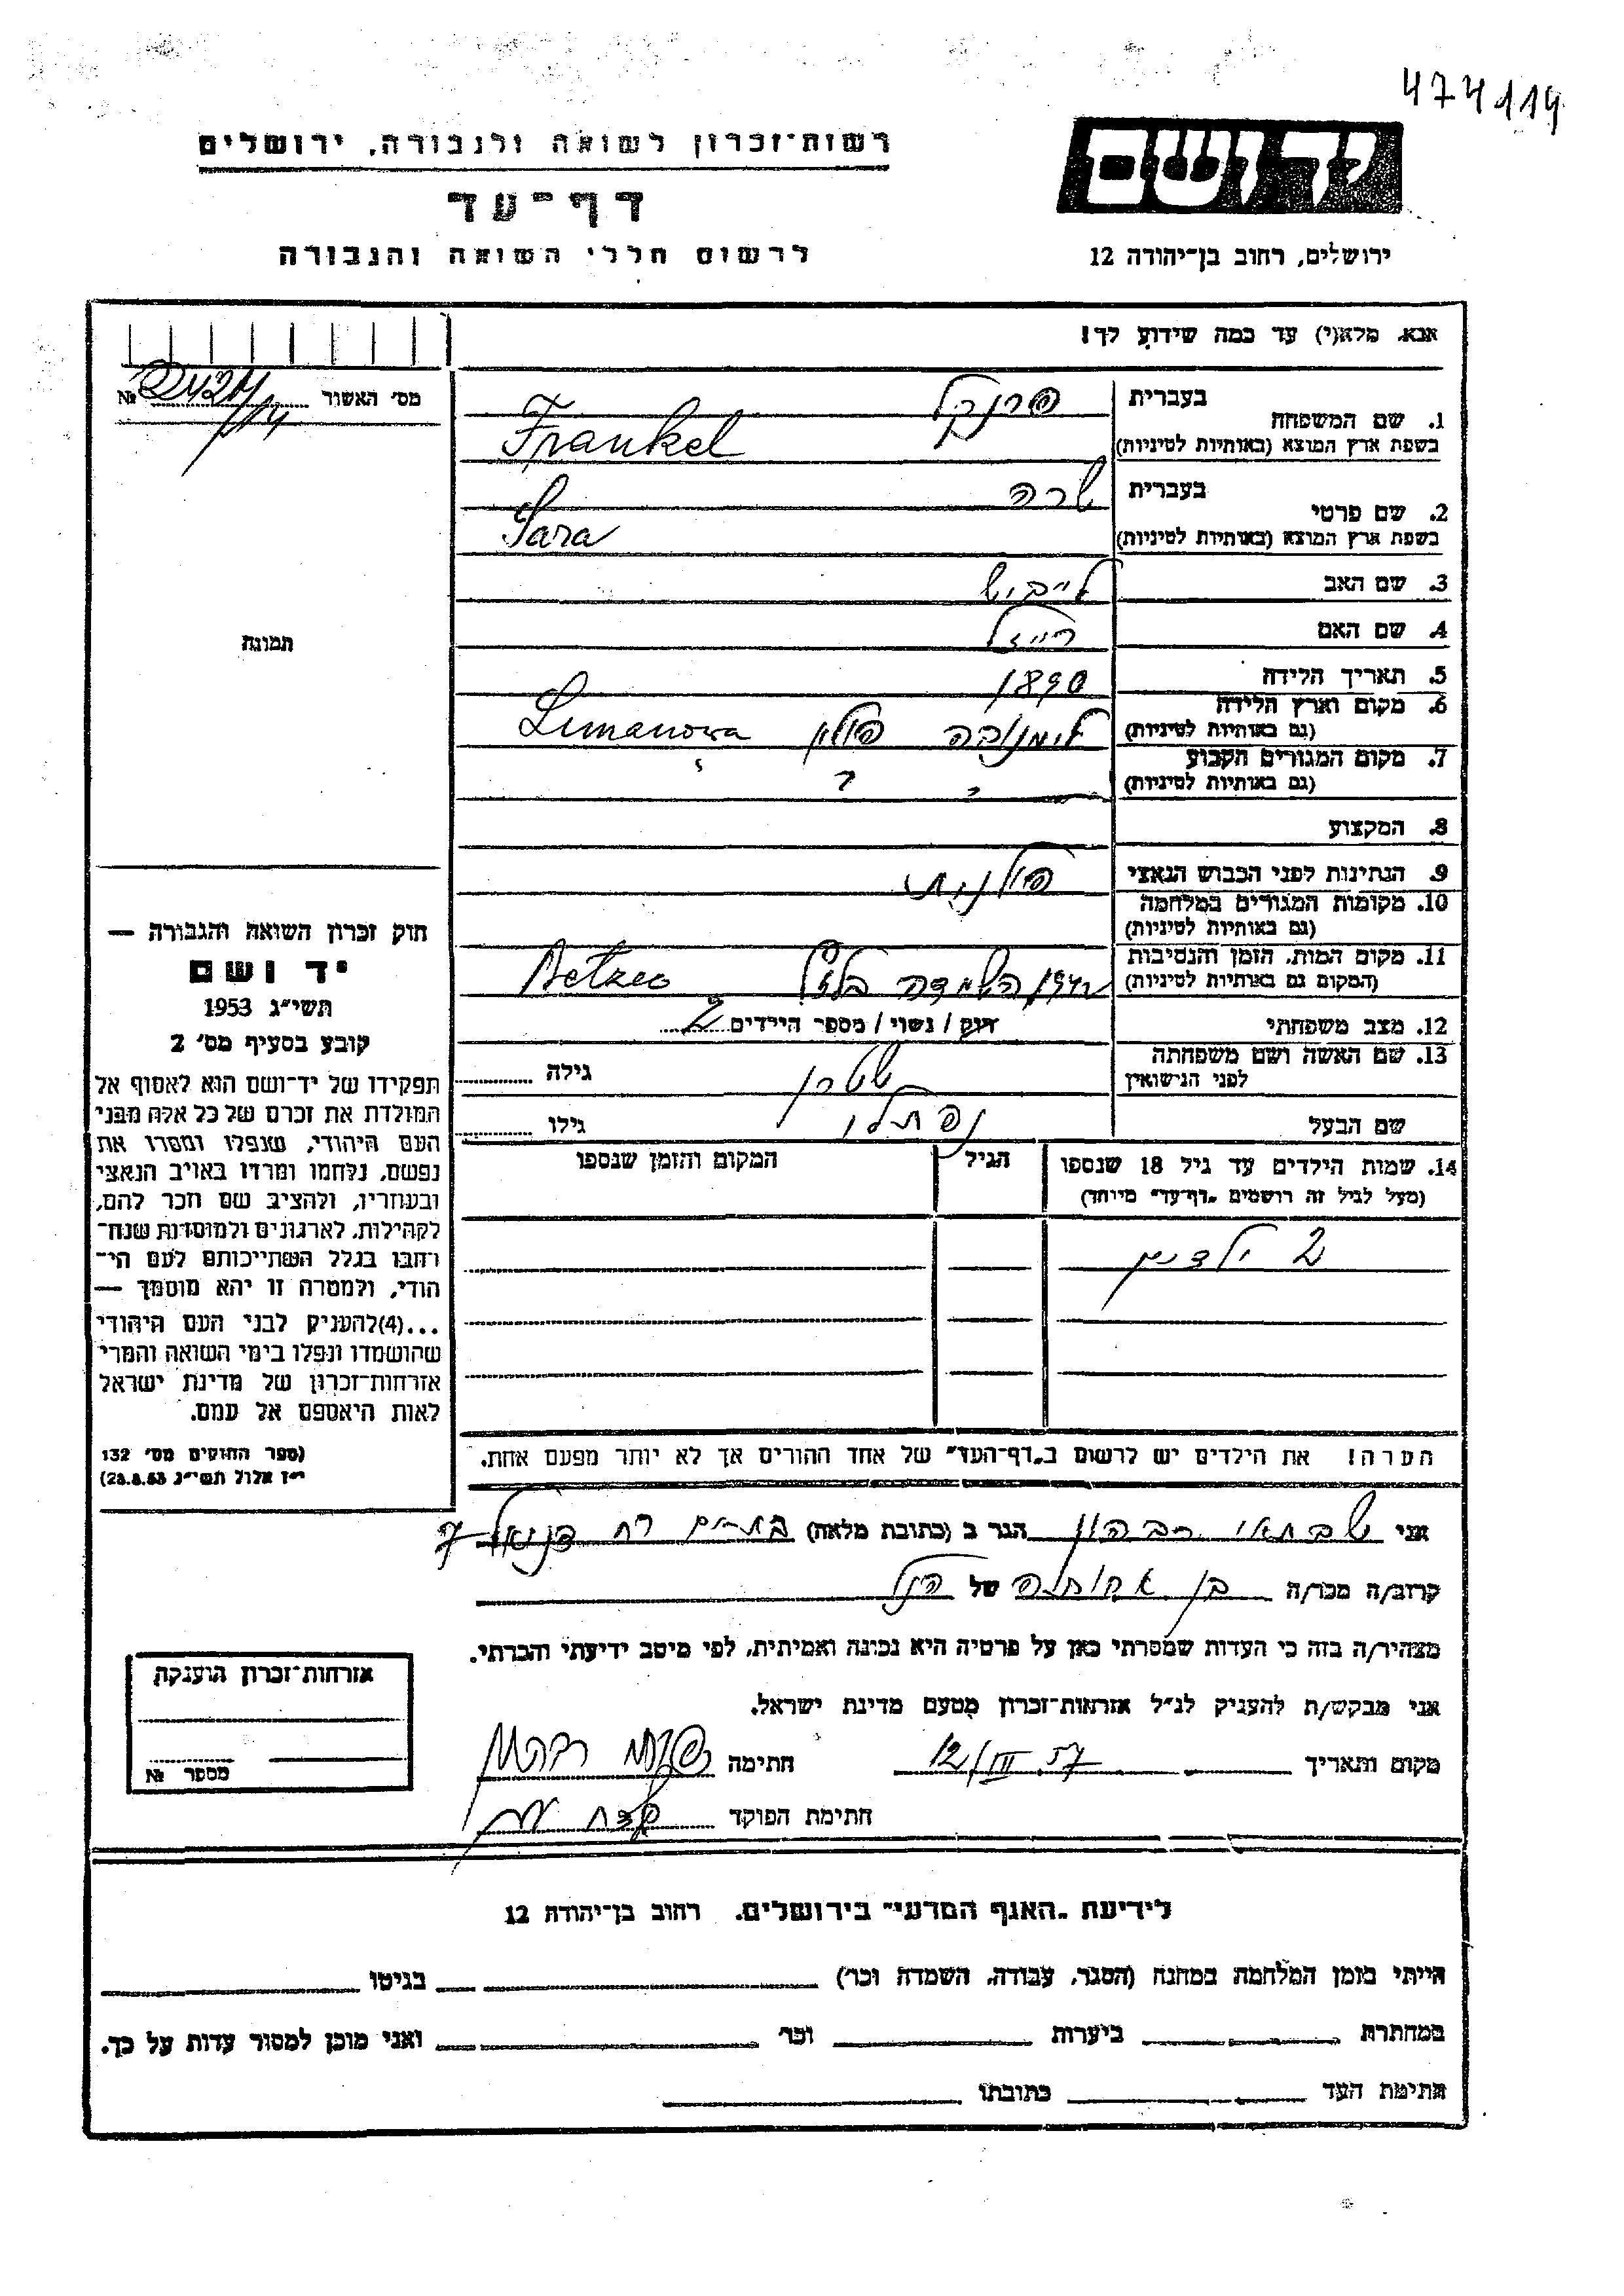 474114
רשות־זכרון לשואה ולגבורה, ירושלים
יד ושם
דף־עד
לרשום חללי השואה והגבורה
ירושלים, רחוב בן־יהודה 12
אנא, מלא(י) עד כמה שידוע לך!
מס׳ האשור № 2424
/14
1. שם המשפחה בעברית פרנקל
בשפת ארץ המוצא (באותיות לטיניות) Frankel
2. שם פרטי בעברית שרה
בשפת ארץ המוצא (באותיות לטיניות) Sara
3. שם האב לייביש
4. שם האם רייזל
תמונה
5. תאריך הלידה 1890
6. מקום וארץ הלידה
(גם באותיות לטיניות) לימנובה פולין Limanowa
7. מקום המגורים הקבוע
(גם באותיות לטיניות)
8. המקצוע
9. הנתינות לפני הכבוש הנאצי פולנית
10. מקומות המגורים במלחמה
(גם באותיות לטיניות)
11. מקום המות, הזמן והנסיבות
(המקום גם באותיות לטיניות) השמדה בלזץ Betzec
12. מצב משפחתי רווק / נשוי / מספר הילדים 2
13. שם האשה ושם משפחתה
לפני הנישואין שטרן גילה
שם הבעל נפתלי גילו
14. שמות הילדים עד גיל 18 שנספו הגיל המקום והזמן שנספו
(מעל לגיל זה רושמים „דף־עד״ מיוחד)
2 ילדים
הערה! את הילדים יש לרשום ב„דף־העד״ של אחד ההורים אך לא יותר מפעם אחת.
חוק זכרון השואה והגבורה —
יד ושם
תשי״ג 1953
קובע בסעיף מס׳ 2
תפקידו של יד־ושם הוא לאסוף אל
המולדת את זכרם של כל אלה מבני
העם היהודי, שנפלו ומסרו את
נפשם, נלחמו ומרדו באויב הנאצי
ובעוזריו, ולהציב שם וזכר להם,
לקהילות, לארגונים ולמוסדות שנח־
רחבו בגלל השתייכותם לעם הי־
הודי, ולמטרה זו יהא מוסמך —
...(4)להעניק לבני העם היהודי
שהושמדו ונפלו בימי השואה והמרי
אזרחות־זכרון של מדינת ישראל
לאות היאספם אל עמם.
(ספר החוקים מס׳ 132
י״ז אלול תשי״ג 28.8.53)
אני שבתאי הגר ב (כתובת מלאה) בת־ים רח דניאל 7
קרוב/ה מכר/ה בן אחותה של הנ״ל
מצהיר/ה בזה כי העדות שמסרתי כאן על פרטיה היא נכונה ואמיתית, לפי מיטב ידיעתי והכרתי.
אני מבקש/ת להעניק לנ״ל אזרחות־זכרון מטעם מדינת ישראל.
מקום ותאריך 12/III 57 חתימה
חתימת הפוקד
אזרחות־זכרון הוענקה
מספר №
לידיעת „האגף המדעי״ בירושלים, רחוב בן־יהודה 12
הייתי בזמן המלחמה במחנה (הסגר, עבודה, השמדה וכו׳) בגיטו
במחתרת ביערות וכו׳ ואני מוכן למסור עדות על כך.
חתימת העד כתובתו